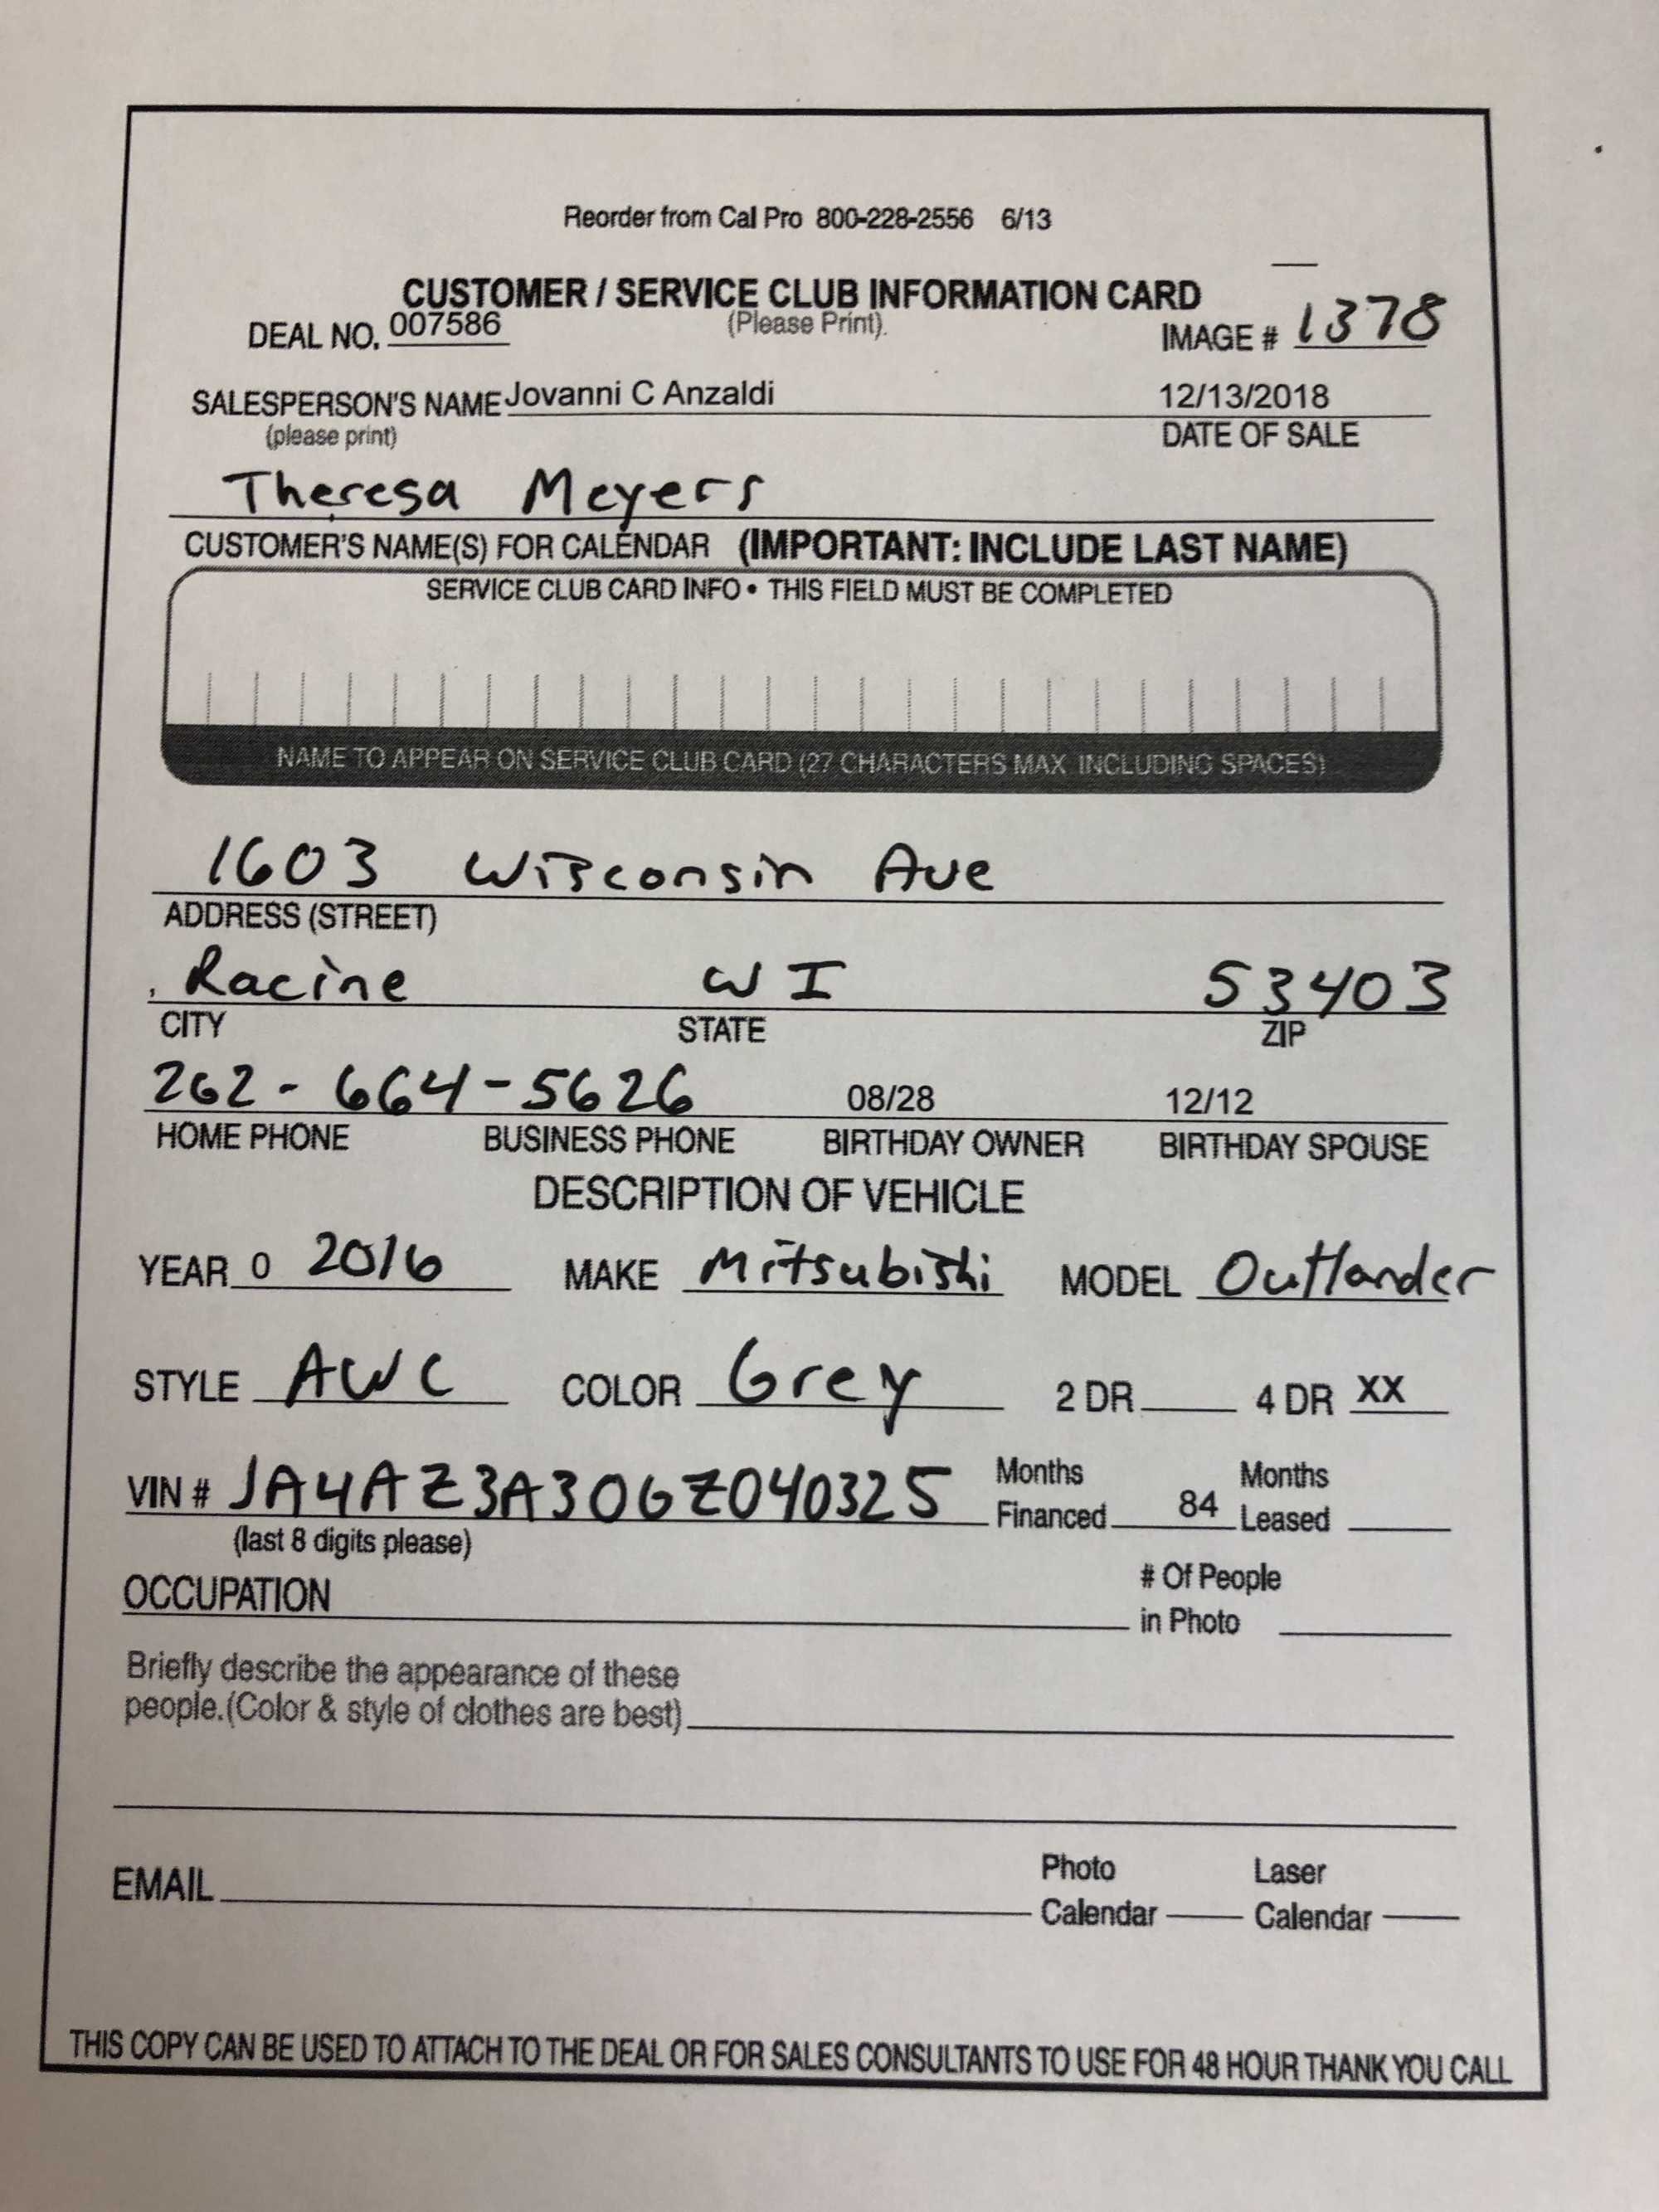 Reorder from Cal Pro 800-228-2556 6/13
CUSTOMER / SERVICE CLUB INFORMATION CARD
(Please Print).
DEAL NO. 007586 IMAGE # 1378
SALESPERSON'S NAME Jovanni C Anzaldi 12/13/2018
(please print) DATE OF SALE
Theresa Meyers
CUSTOMER'S NAME(S) FOR CALENDAR (IMPORTANT: INCLUDE LAST NAME)
SERVICE CLUB CARD INFO • THIS FIELD MUST BE COMPLETED
NAME TO APPEAR ON SERVICE CLUB CARD (27 CHARACTERS MAX INCLUDING SPACES)
1603 Wisconsin Ave
ADDRESS (STREET)
Racine WI 53403
CITY STATE ZIP
262-664-5626 08/28 12/12
HOME PHONE BUSINESS PHONE BIRTHDAY OWNER BIRTHDAY SPOUSE
DESCRIPTION OF VEHICLE
YEAR 0 2016 MAKE Mitsubishi MODEL Outlander
STYLE AWC COLOR Grey 2 DR 4 DR XX
VIN # JA4AZ3A30GZ040325 Months Financed 84 Months Leased
(last 8 digits please)
OCCUPATION # Of People in Photo
Briefly describe the appearance of these
people.(Color & style of clothes are best)
EMAIL Photo Calendar Laser Calendar
THIS COPY CAN BE USED TO ATTACH TO THE DEAL OR FOR SALES CONSULTANTS TO USE FOR 48 HOUR THANK YOU CALL